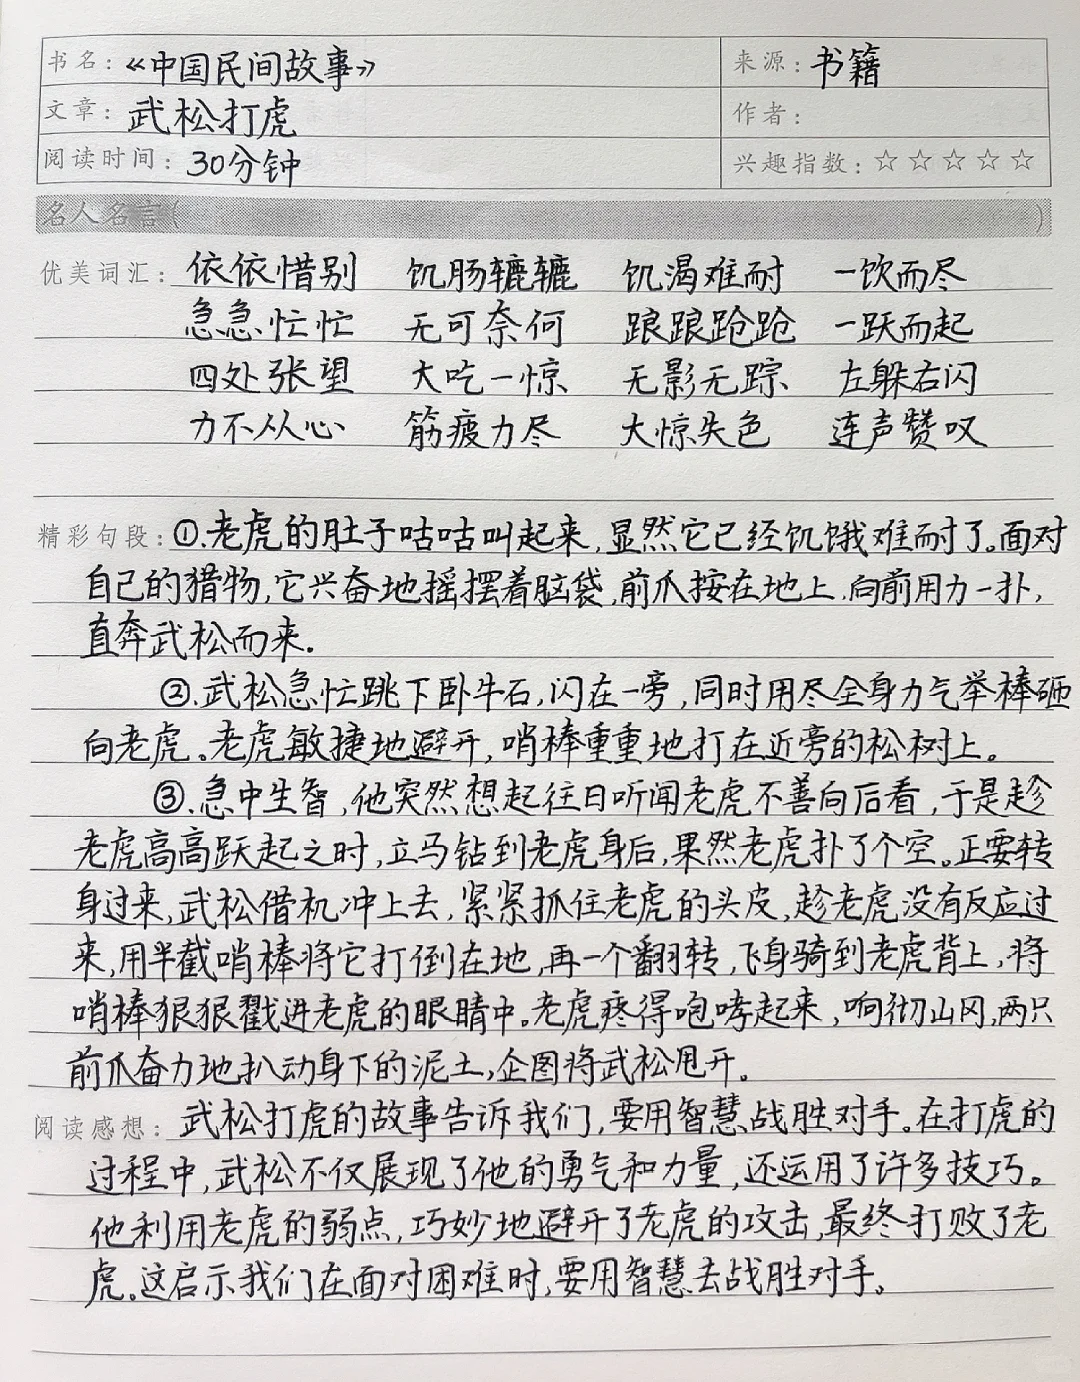 书名：《中国民间故事》 来源：书籍
文章：武松打虎 作者：
阅读时间：30分钟 兴趣指数：☆☆☆☆☆
名人名言（ ）
优美词汇：依依惜别 饥肠辘辘 饥渴难耐 一饮而尽
急急忙忙 无可奈何 踉踉跄跄 一跃而起
四处张望 大吃一惊 无影无踪 左躲右闪
力不从心 筋疲力尽 大惊失色 连声赞叹
精彩句段：①.老虎的肚子咕咕叫起来,显然它已经饥饿难耐了。面对
自己的猎物,它兴奋地摇摆着脑袋,前爪按在地上,向前用力一扑,
直奔武松而来.
②.武松急忙跳下卧牛石,闪在一旁,同时用尽全身力气举棒砸
向老虎。老虎敏捷地避开,哨棒重重地打在近旁的松树上。
③.急中生智,他突然想起往日听闻老虎不善向后看,于是趁
老虎高高跃起之时,立马钻到老虎身后,果然老虎扑了个空。正要转
身过来,武松借机冲上去,紧紧抓住老虎的头皮,趁老虎没有反应过
来,用半截哨棒将它打倒在地,再一个翻转,飞身骑到老虎背上,将
哨棒狠狠戳进老虎的眼睛中。老虎疼得咆哮起来,响彻山冈,两只
前爪奋力地扒动身下的泥土,企图将武松甩开。
阅读感想：武松打虎的故事告诉我们,要用智慧战胜对手。在打虎的
过程中,武松不仅展现了他的勇气和力量,还运用了许多技巧。
他利用老虎的弱点,巧妙地避开了老虎的攻击,最终打败了老
虎。这启示我们在面对困难时,要用智慧去战胜对手。